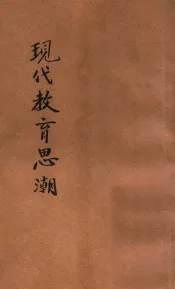 現代教育思潮